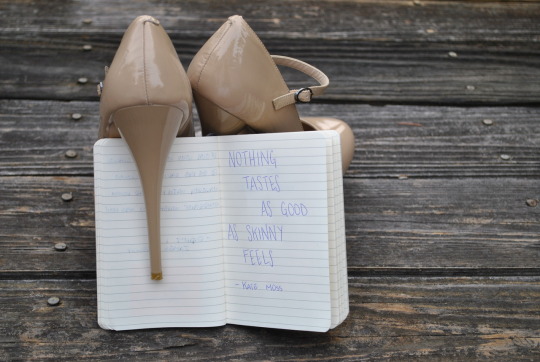 NOTHING
TASTES
AS GOOD
AS SKINNY
FEELS
- KATE MOSS